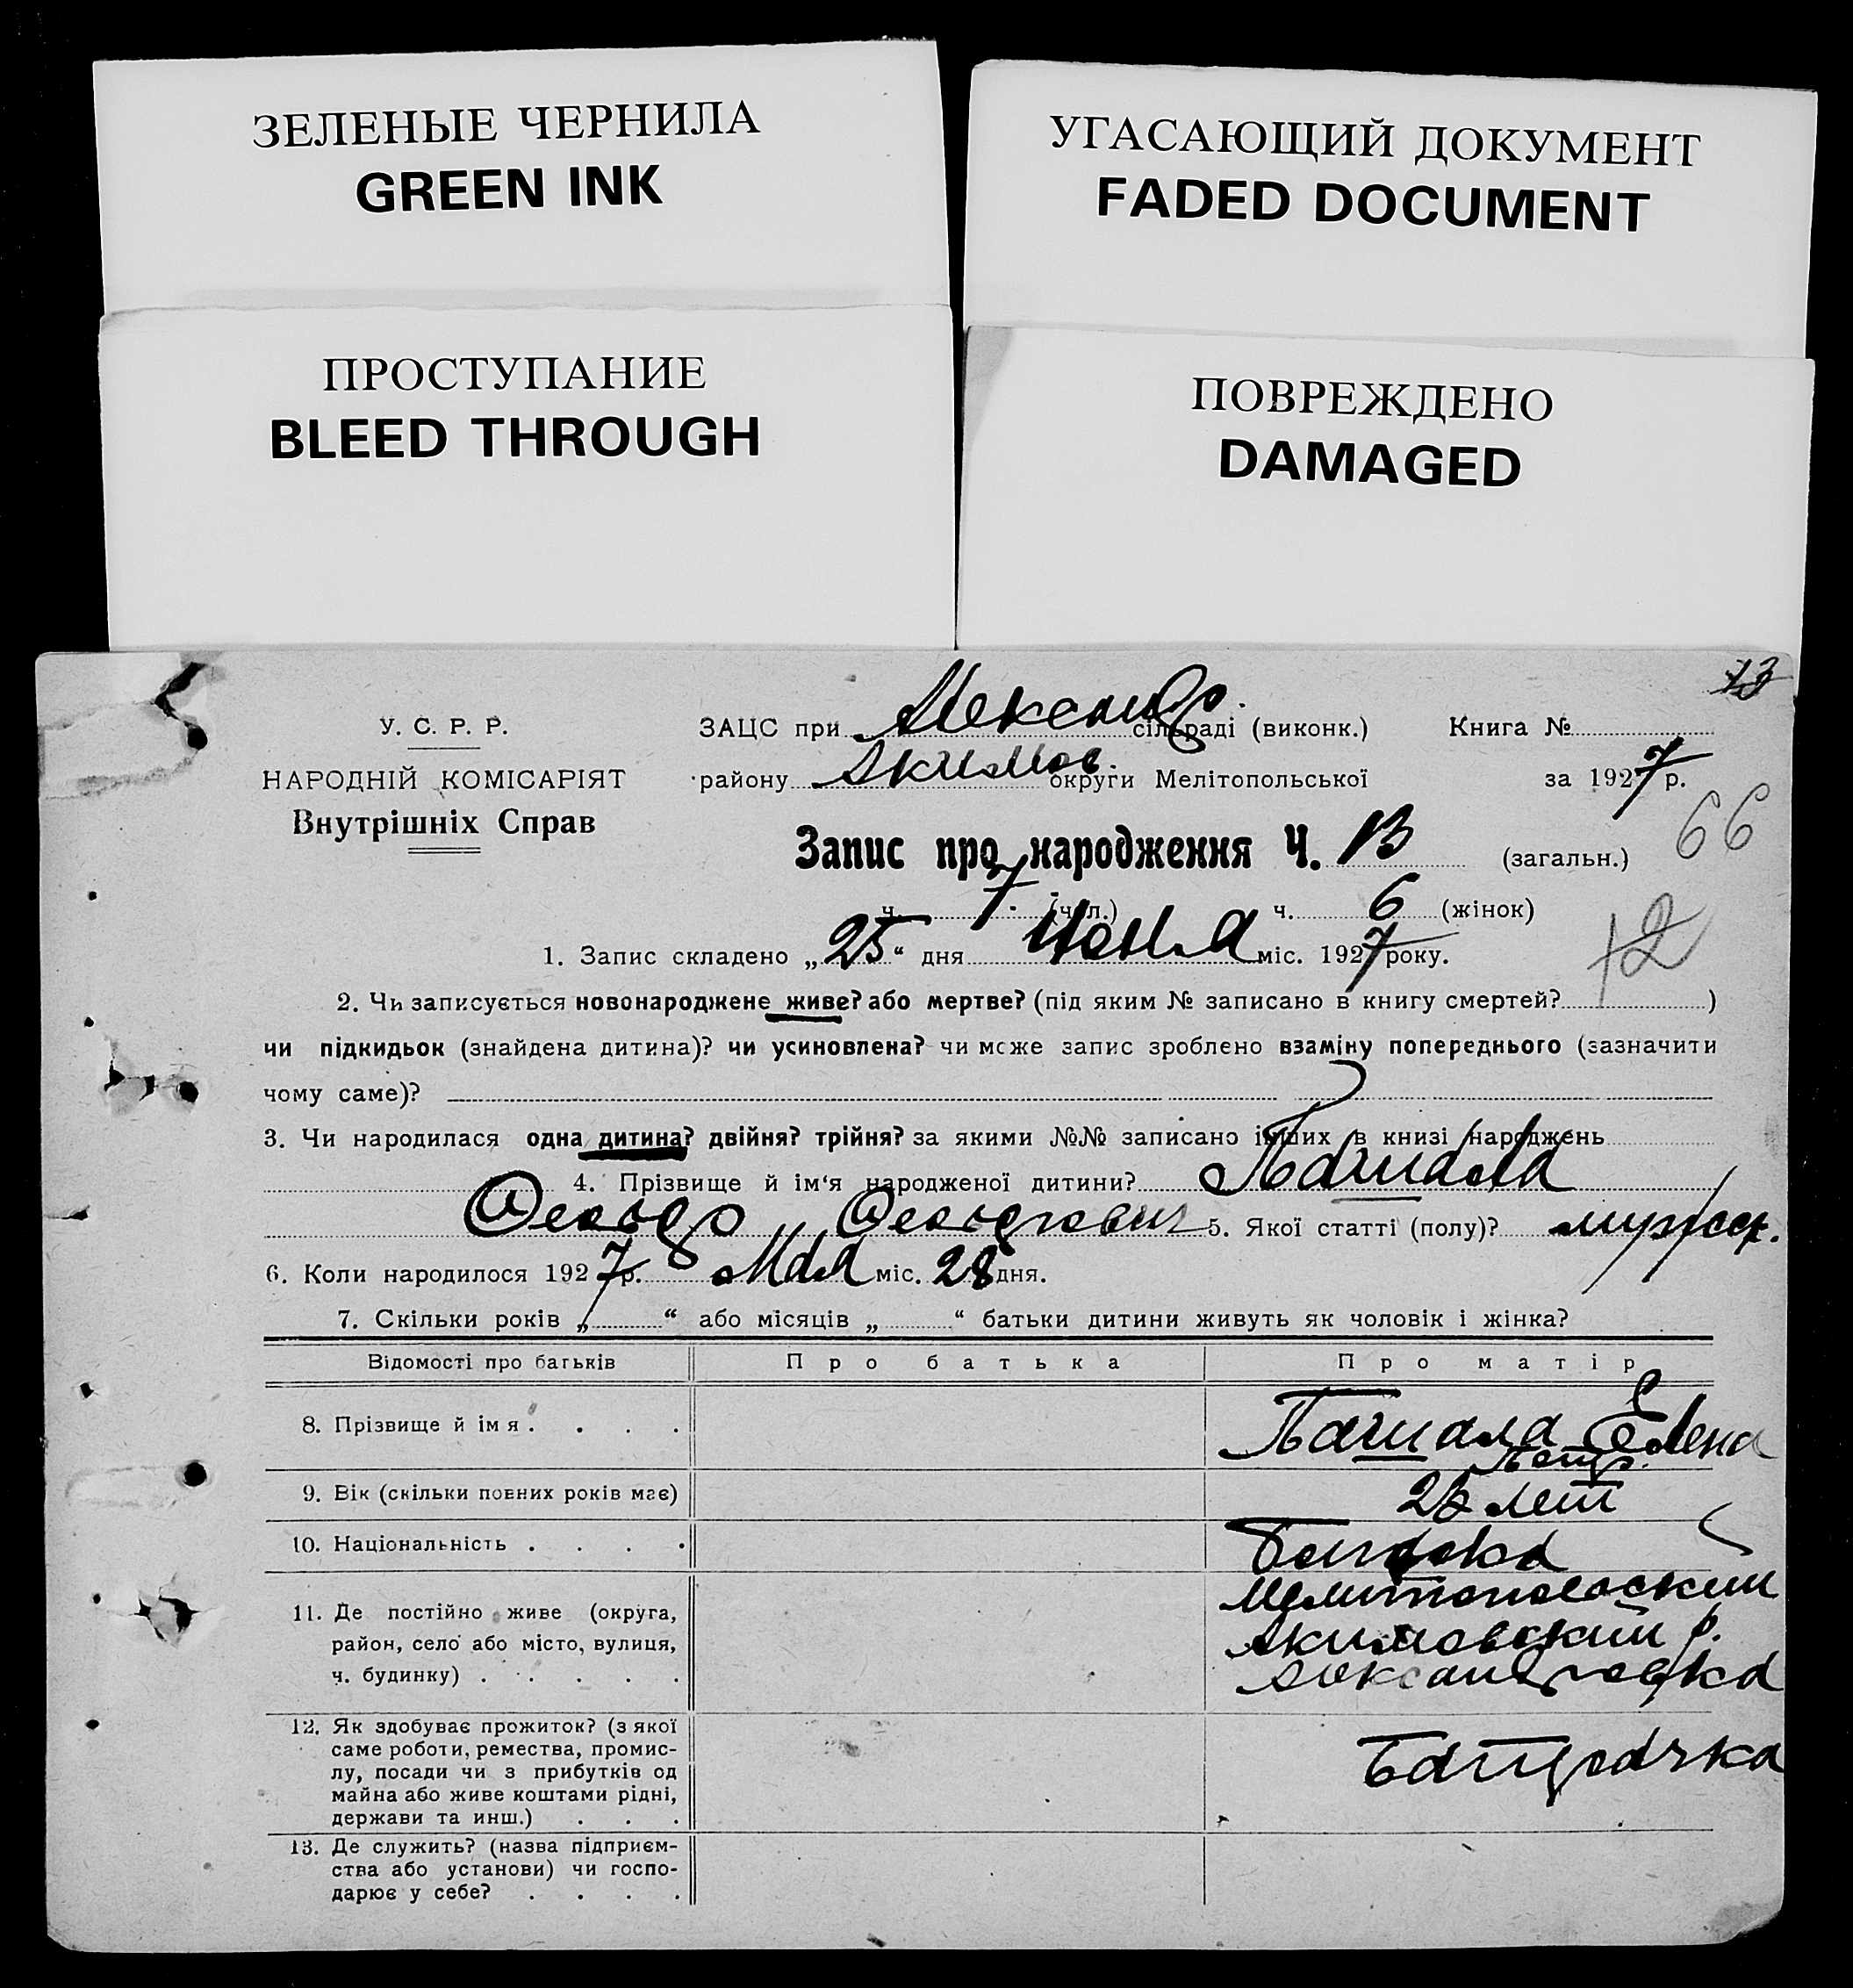 ЗЕЛЕНЫЕ ЧЕРНИЛА
GREEN INK
УГАСАЮЩИЙ ДОКУМЕНТ
FADED DOCUMENT
ПРОСТУПАНИЕ
BLEED THROUGH
ПОВРЕЖДЕНО
DAMAGED
13
У. С. Р. Р.
НАРОДНІЙ КОМІСАРІЯТ
Внутрішніх Справ
ЗАЦС при Александр. сільраді (виконк.) Книга №
району Акимов. округи Мелітопольської за 1927 р.
66
Запис про народження Ч. 13 (загальн.)
ч. 7 (чол.) ч. 6 (жінок)
12
1. Запис складено „25“ дня Июня міс. 1927 року.
2. Чи записується новонароджене живе? або мертве? (під яким № записано в книгу смертей? )
чи підкидьок (знайдена дитина)? чи усиновлена? чи може запис зроблено взаміну попереднього (зазначити
чому саме)?
3. Чи народилася одна дитина? двійня? трійня? за якими №№ записано інших в книзі народжень
4. Прізвище й ім‘я народженої дитини?
5. Якої статті (полу)? мужск.
6. Коли народилося 1927 р. Мая міс. 28 дня.
7. Скільки років „ “ або місяців „ “ батьки дитини живуть як чоловік і жінка?
Відомості про батьків Про батька Про матір
8. Прізвище й імя . . . . Елена
Петр.
9. Вік (скільки повних років має) лет
10. Національність . . . . Болгарка
11. Де постійно живе (округа,
район, село або місто, вулиця,
ч. будинку) . . . . .
Мелитопольский
Акимовский р.
Александровка
12. Як здобуває прожиток? (з якої
саме роботи, ремества, промис-
лу, посади чи з прибутків од
майна або живе коштами рідні,
держави та инш.) . . .
Батрачка
13. Де служить? (назва підприєм-
ства або установи) чи госпо-
дарює у себе? . . . .